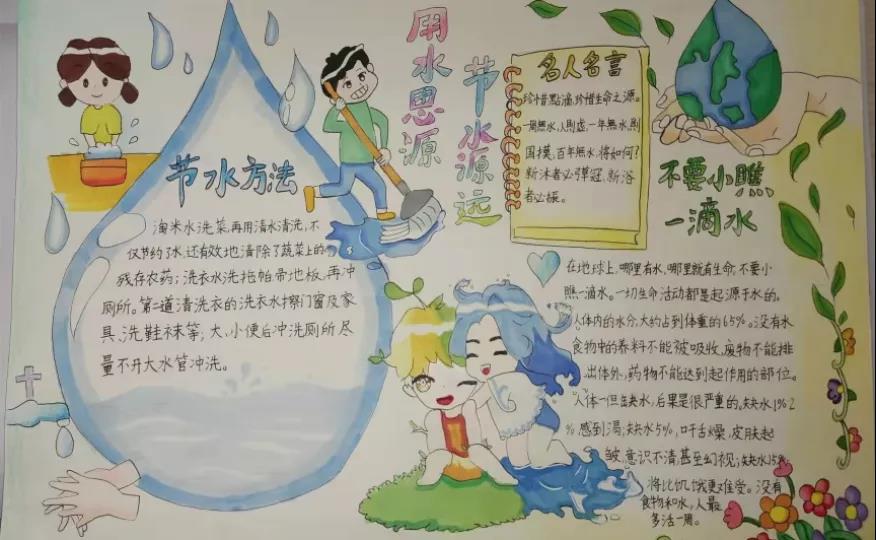 用水思源
节水源远
节水方法
淘米水洗菜,再用清水清洗,不
仅节约了水,还有效地清除了蔬菜上的
残存农药;洗衣水洗拖帕帚地板,再冲
厕所。第二道清洗衣的洗衣水擦门窗及家
具、洗鞋袜等;大、小便后冲洗厕所尽
量不开大水管冲洗。
名人名言
珍惜點滴,珍惜生命之源。
一周無水,人則虚,一年無水,則
国摸,百年無水,将如何?
新沐者必弹冠,新浴
者必振。
不要小瞧
一滴水
在地球上,哪里有水,哪里就有生命,不要小
瞧一滴水。一切生命活动都是起源于水的。
人体内的水分,大约占到体重的65%。没有水
食物中的养料不能被吸收,废物不能排
出体外,药物不能达到起作用的部位。
人体一但缺水,后果是很严重的。缺水1%2
%感到渴;缺水5%,口干舌燥,皮肤起
皱,意识不清,甚至幻视;缺水15%,
将比饥饿更难受。没有
食物和水,人最
多活一周。